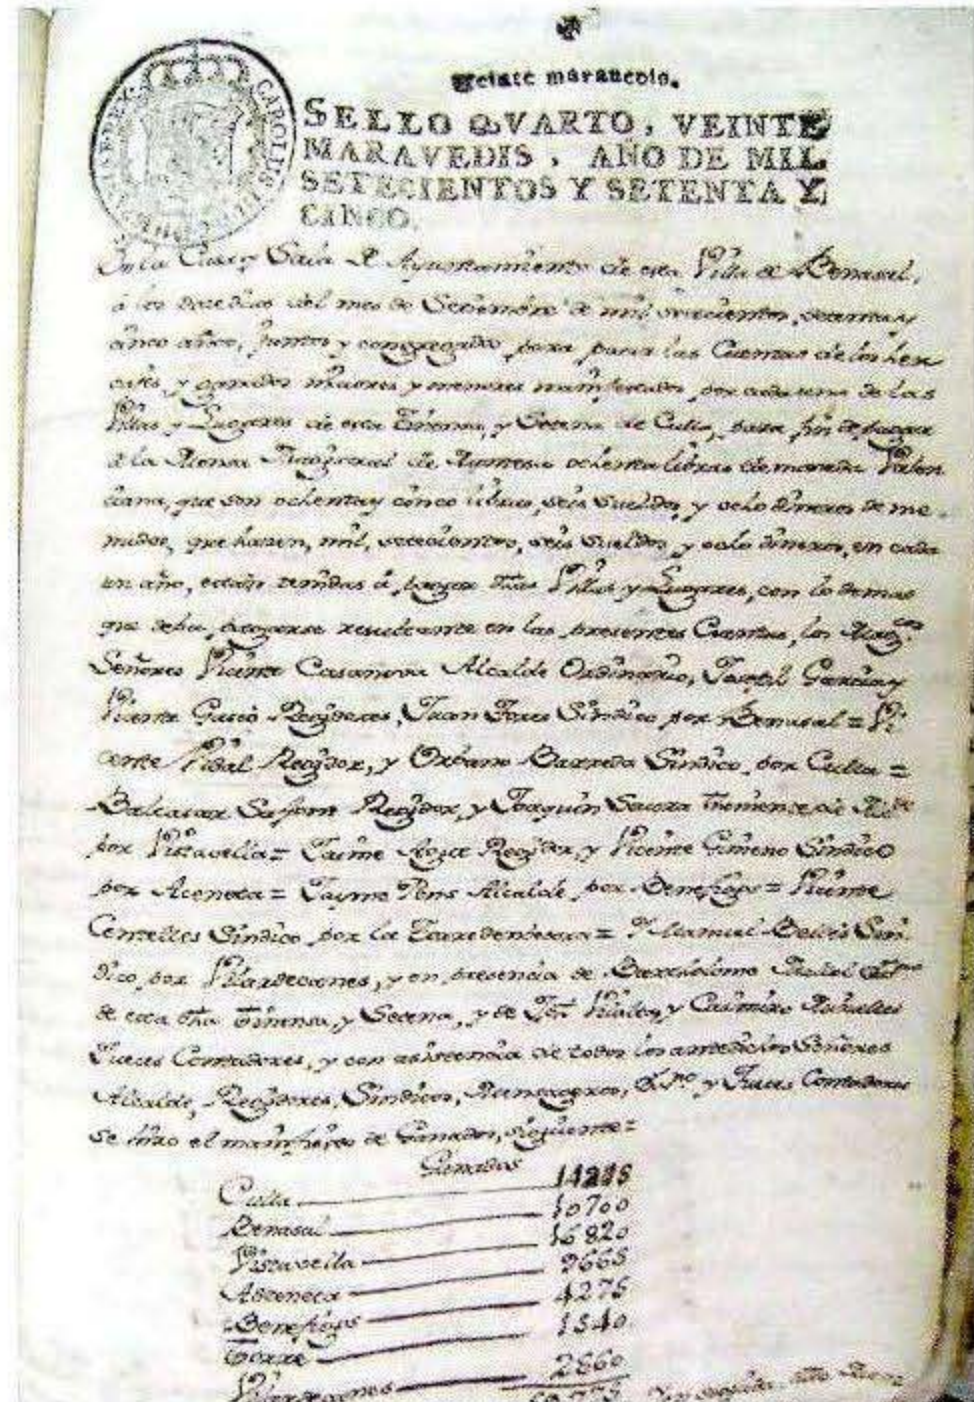 Veinte maravedis.
CAROLUS III
SELLO QVARTO, VEINTE
MARAVEDIS, AÑO DE MIL
SETECIENTOS Y SETENTA Y
CINCO.
En la Casa y Sala de Ayuntamiento de esta Villa de Benasal,
á los doze dias del mes de Setiembre de mil setecientos, setenta y
cinco años, Juntos y congregados para pasar las Cuentas de los
y ganados maiores y menores manifestados por cada una de las
Villas y Lugares de esta Tinensa, y Setena de Culla, para fin de pagar
á la Mensa Magistral de Montesa ochenta libras de moneda Valen
ciana, que son ochenta y cinco libras, seis sueldos, y ocho dineros de me
nudos, que hazen, mil, setecientos, seis sueldos y ocho dineros, en cada
un año, están tenidas á pagar dhas Villas y Lugares, con lo demas
que deba pagarse resultante en las presentes Cuentas, los
Señores Vicente Casanova Alcalde Ordinario, Joseph Garcia y
Vicente Gascó Regidores, Juan Fores Sindico por Benasal = Vi
cente Vidal Regidor, y Orbano Barreda Sindico, por Culla =
Balthasar Safont Regidor, y Joaquin teniente de
por Vistavella = Jaime Regidor, y Vicente Gimeno Sindico
por Aceneta = Jayme Pons Alcalde, por Benefigos = Vicente
Centelles Sindico por la Torredembesora = Y Manuel Bellés Sin
dico, por Vilardecanes, y en presencia de Bartholome
de esta dha Tinensa, y Setena, y de y Casimiro
Jueces Contadores, y con asistencia de todos los antedichos Señores
Alcalde, Regidores, Sindicos, y Jueces Contadores
se hizo el manifiesto de Ganados, siguiente =
Ganados
Culla 14215
Benasal 10700
Vistavella 16820
Aceneta 9665
Benefigos 4275
Torre 1340
Vilardecanes 2860